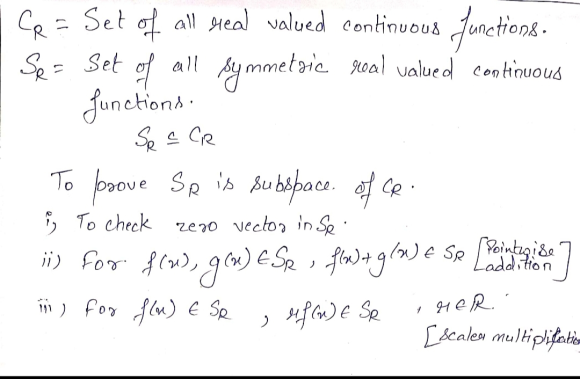 C_R = Set of all real valued continuous functions.
S_R = Set of all symmetric real valued continuous
functions.
S_R ⊆ C_R
To prove S_R is subspace. of C_R.
i, To check zero vector in S_R.
ii) For f(x), g(x) ∈ S_R , f(x)+g(x) ∈ S_R [Pointwise
addition]
iii) For f(x) ∈ S_R , rf(x) ∈ S_R , r∈R.
[Scaler multiplication